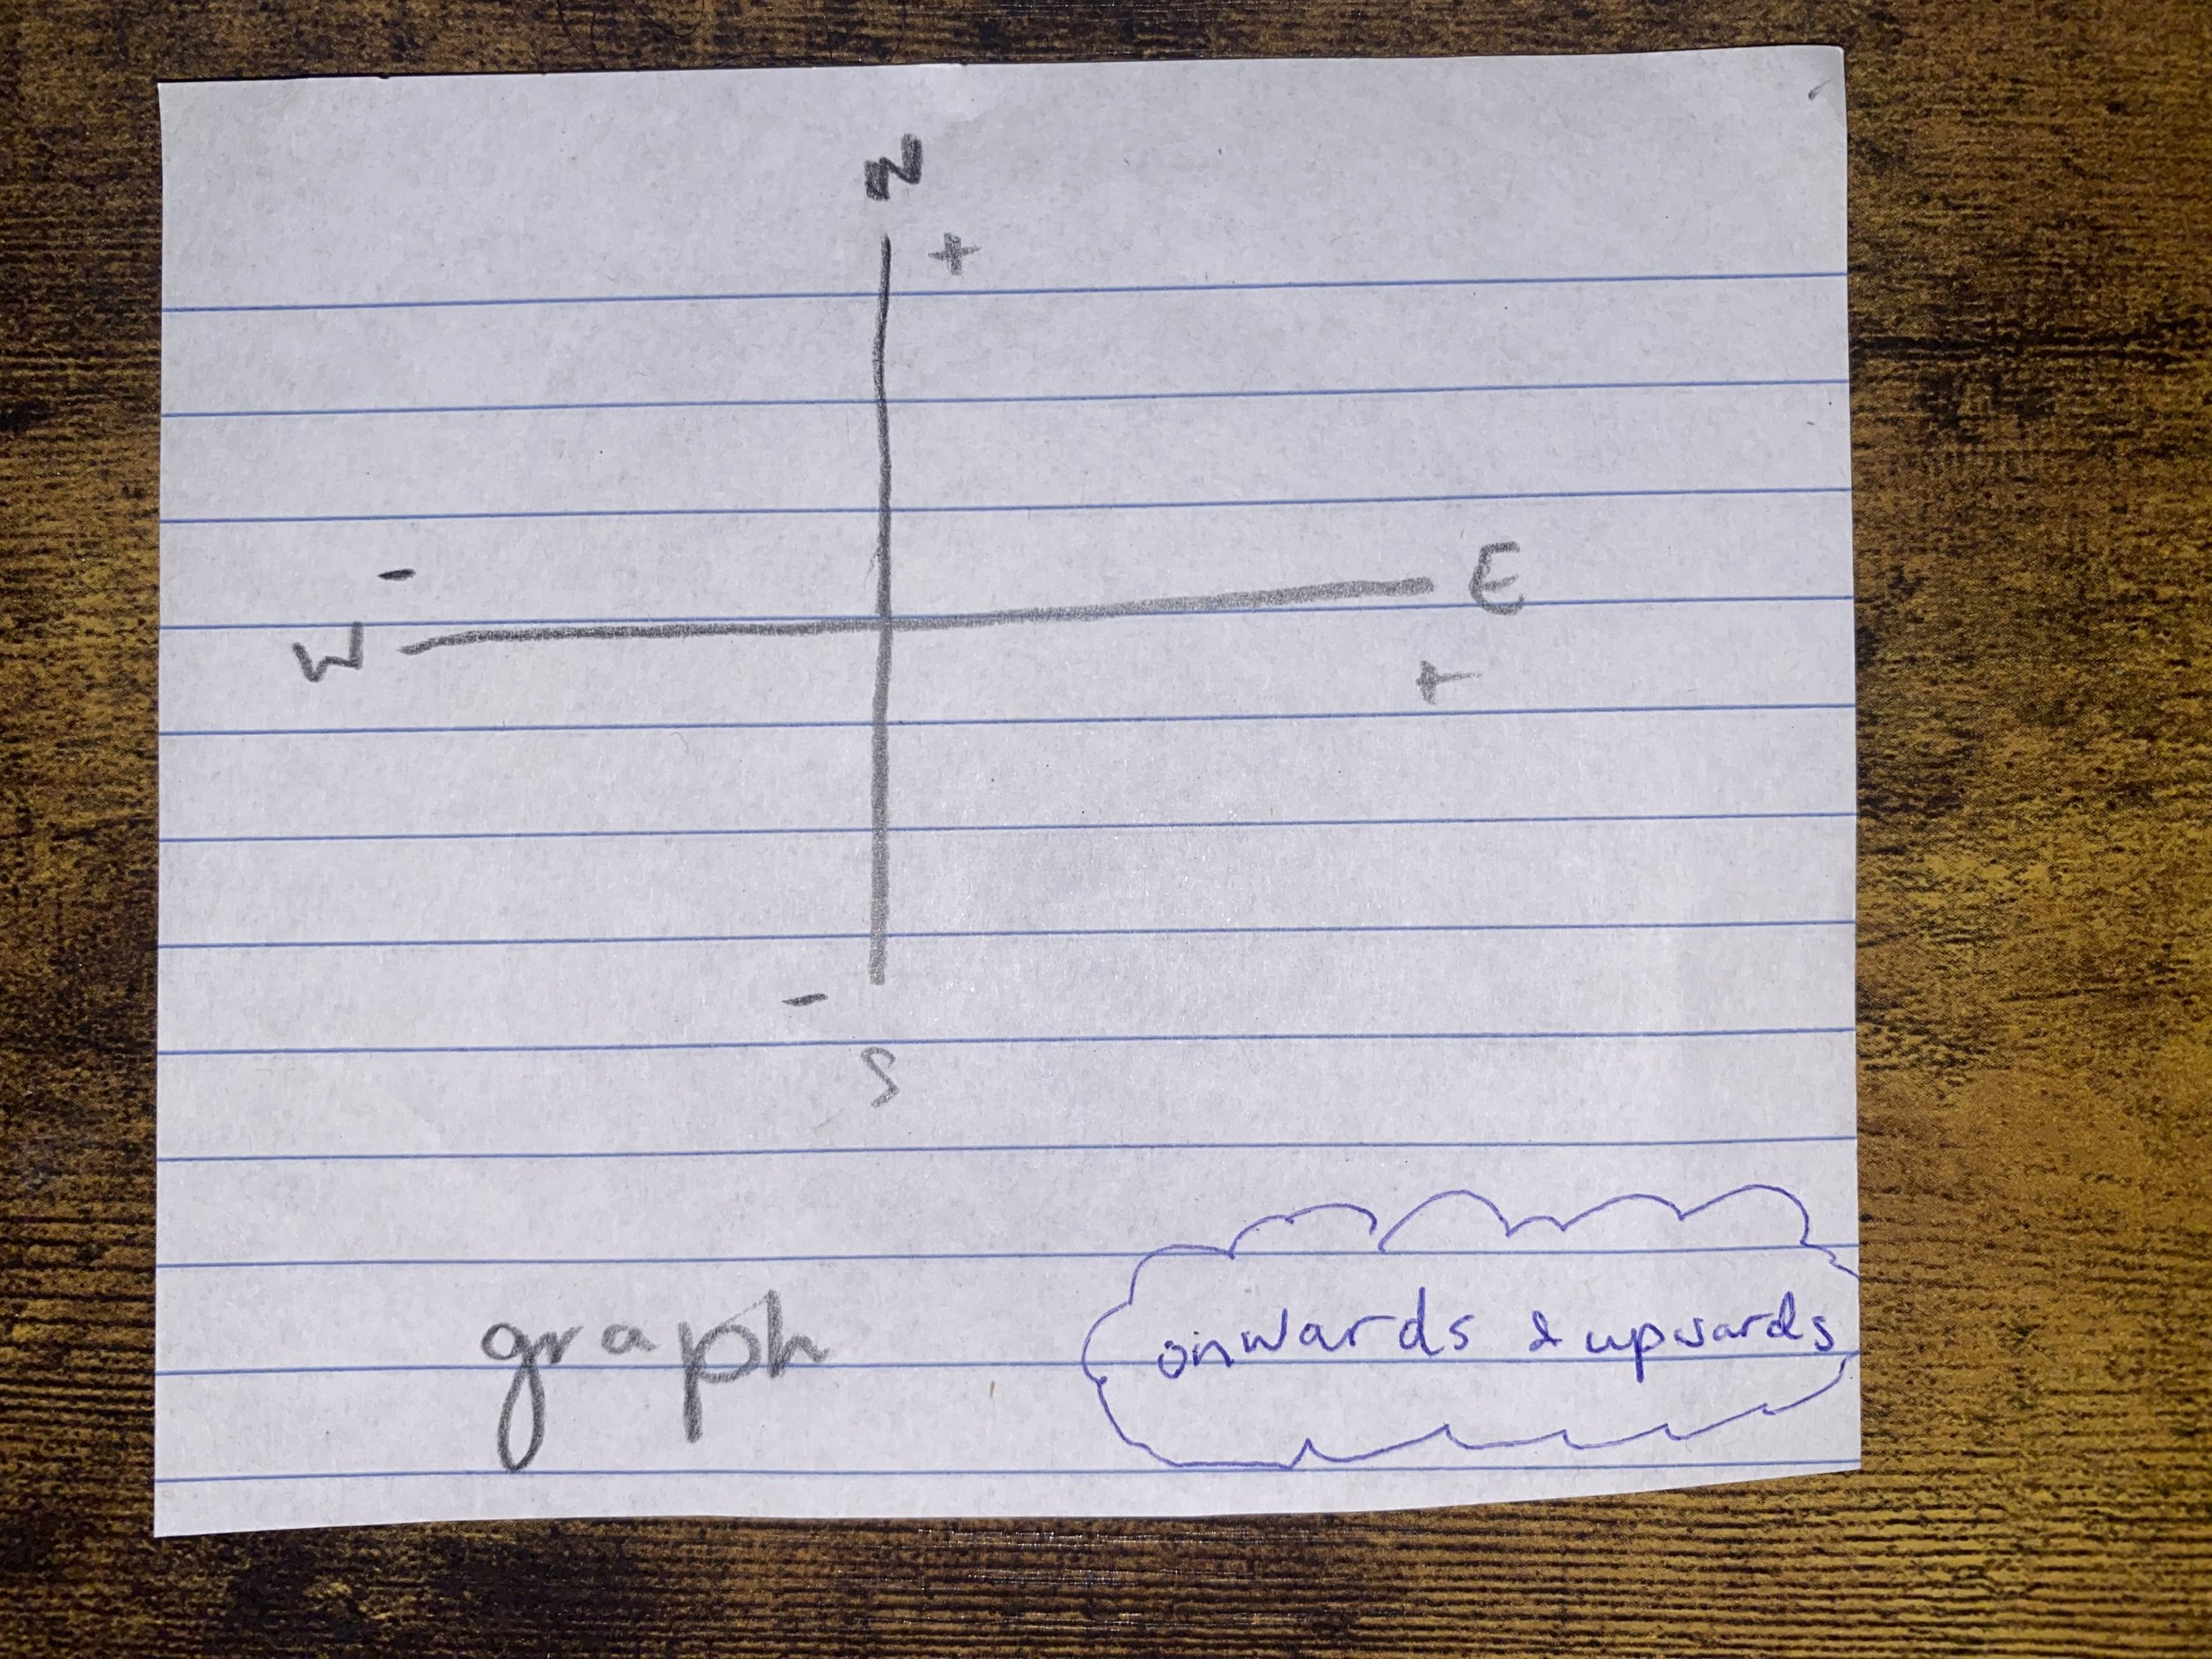 N
+
-
W
E
+
-
S
graph
onwards & upwards